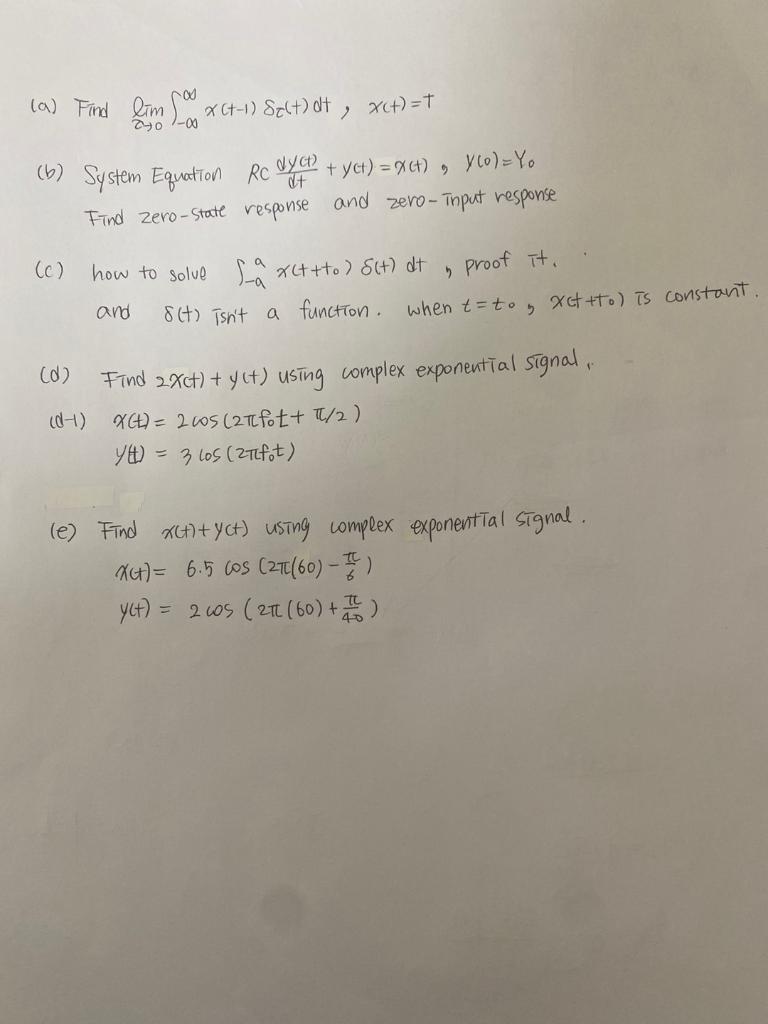 (a) Find lim τ→0 ∫-∞^∞ x(t-1) δτ(t) dt , x(t) = t
(b) System Equation RC dy(t)/dt + y(t) = x(t) , y(0) = Y₀
Find zero-state response and zero-input response
(c) how to solve ∫-a^a x(t+t₀) δ(t) dt , proof it.
and δ(t) isn't a function. when t = t₀ , x(t+t₀) is constant.
(d) Find 2x(t) + y(t) using complex exponential signal.
(d-1) x(t) = 2 cos (2πf₀t + π/2)
y(t) = 3 cos (2πf₀t)
(e) Find x(t) + y(t) using complex exponential signal.
x(t) = 6.5 cos (2π(60) - π/6)
y(t) = 2 cos (2π(60) + π/40)